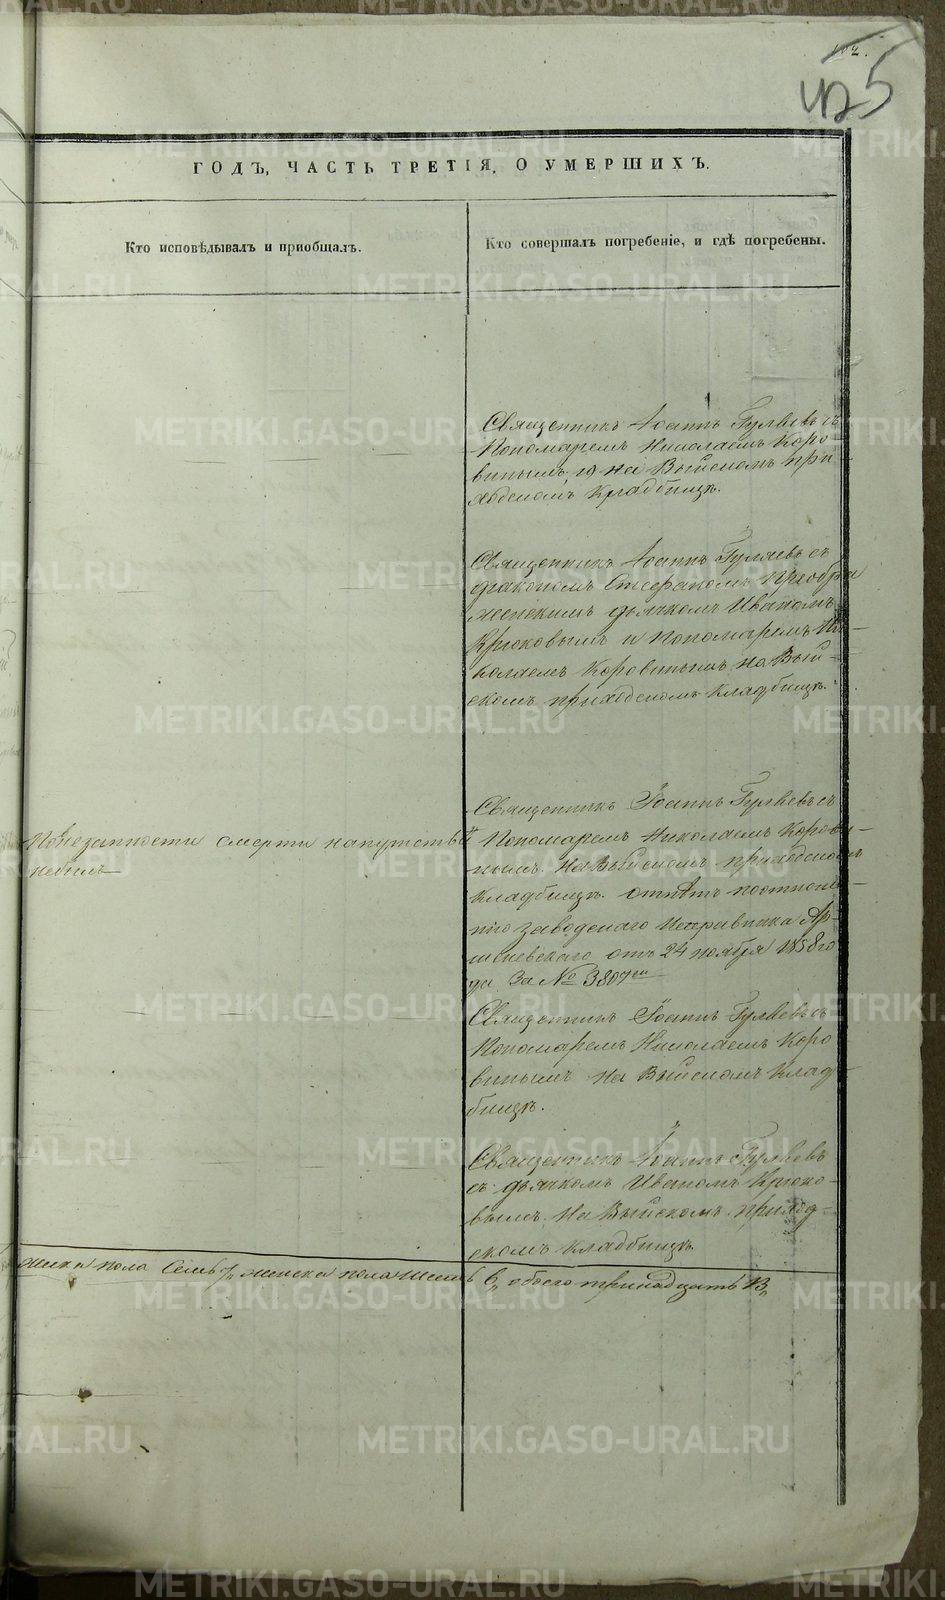 102.
425
ГОДЪ, ЧАСТЬ ТРЕТІЯ, О УМЕРШИХЪ.
Кто исповѣдывалъ и пріобщалъ.
Кто совершалъ погребеніе, и гдѣ погребены.
Священникъ Іоаннъ Гуляевъ съ
Пономаремъ Николаемъ Коро-
винымъ, на Выйскомъ при
ходскомъ кладбищѣ.
Священникъ Іоаннъ Гуляевъ съ
діакономъ Стефаномъ Преобра
женскимъ дьячкомъ Иваномъ
Крюковымъ и Пономаремъ Ни-
колаемъ Коровинымъ на Вый-
скомъ приходскомъ кладбищѣ.
Понезапности смерти напутств
небылъ
Священникъ Іоаннъ Гуляевъ съ
Пономаремъ Николаемъ Корови-
нымъ. На Выйскомъ приходскомъ
кладбищѣ. отпѣтъ
нію заводскаго Исправника
отъ 24 ноября 1858 го
да За № 3807
Священникъ Іоаннъ Гуляевъ съ
Пономаремъ Николаемъ Коро
винымъ на Выйскомъ клад-
бищѣ.
Священникъ Іоаннъ Гуляевъ
съ дьячкомъ Иваномъ Крюко-
вымъ. На Выйскомъ приход-
скомъ кладбищѣ
пола Семь 7, женска пола Шесть 6, обоего тринадцать 13,
METRIKI.GASO-URAL.RU